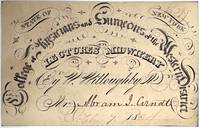 STATE OF NEW YORK
College of Physicians and Surgeons of the Western District
LECTURES ON MIDWIFERY
By W. Willoughby M.D.
Mr. Abram J. Arndt
18